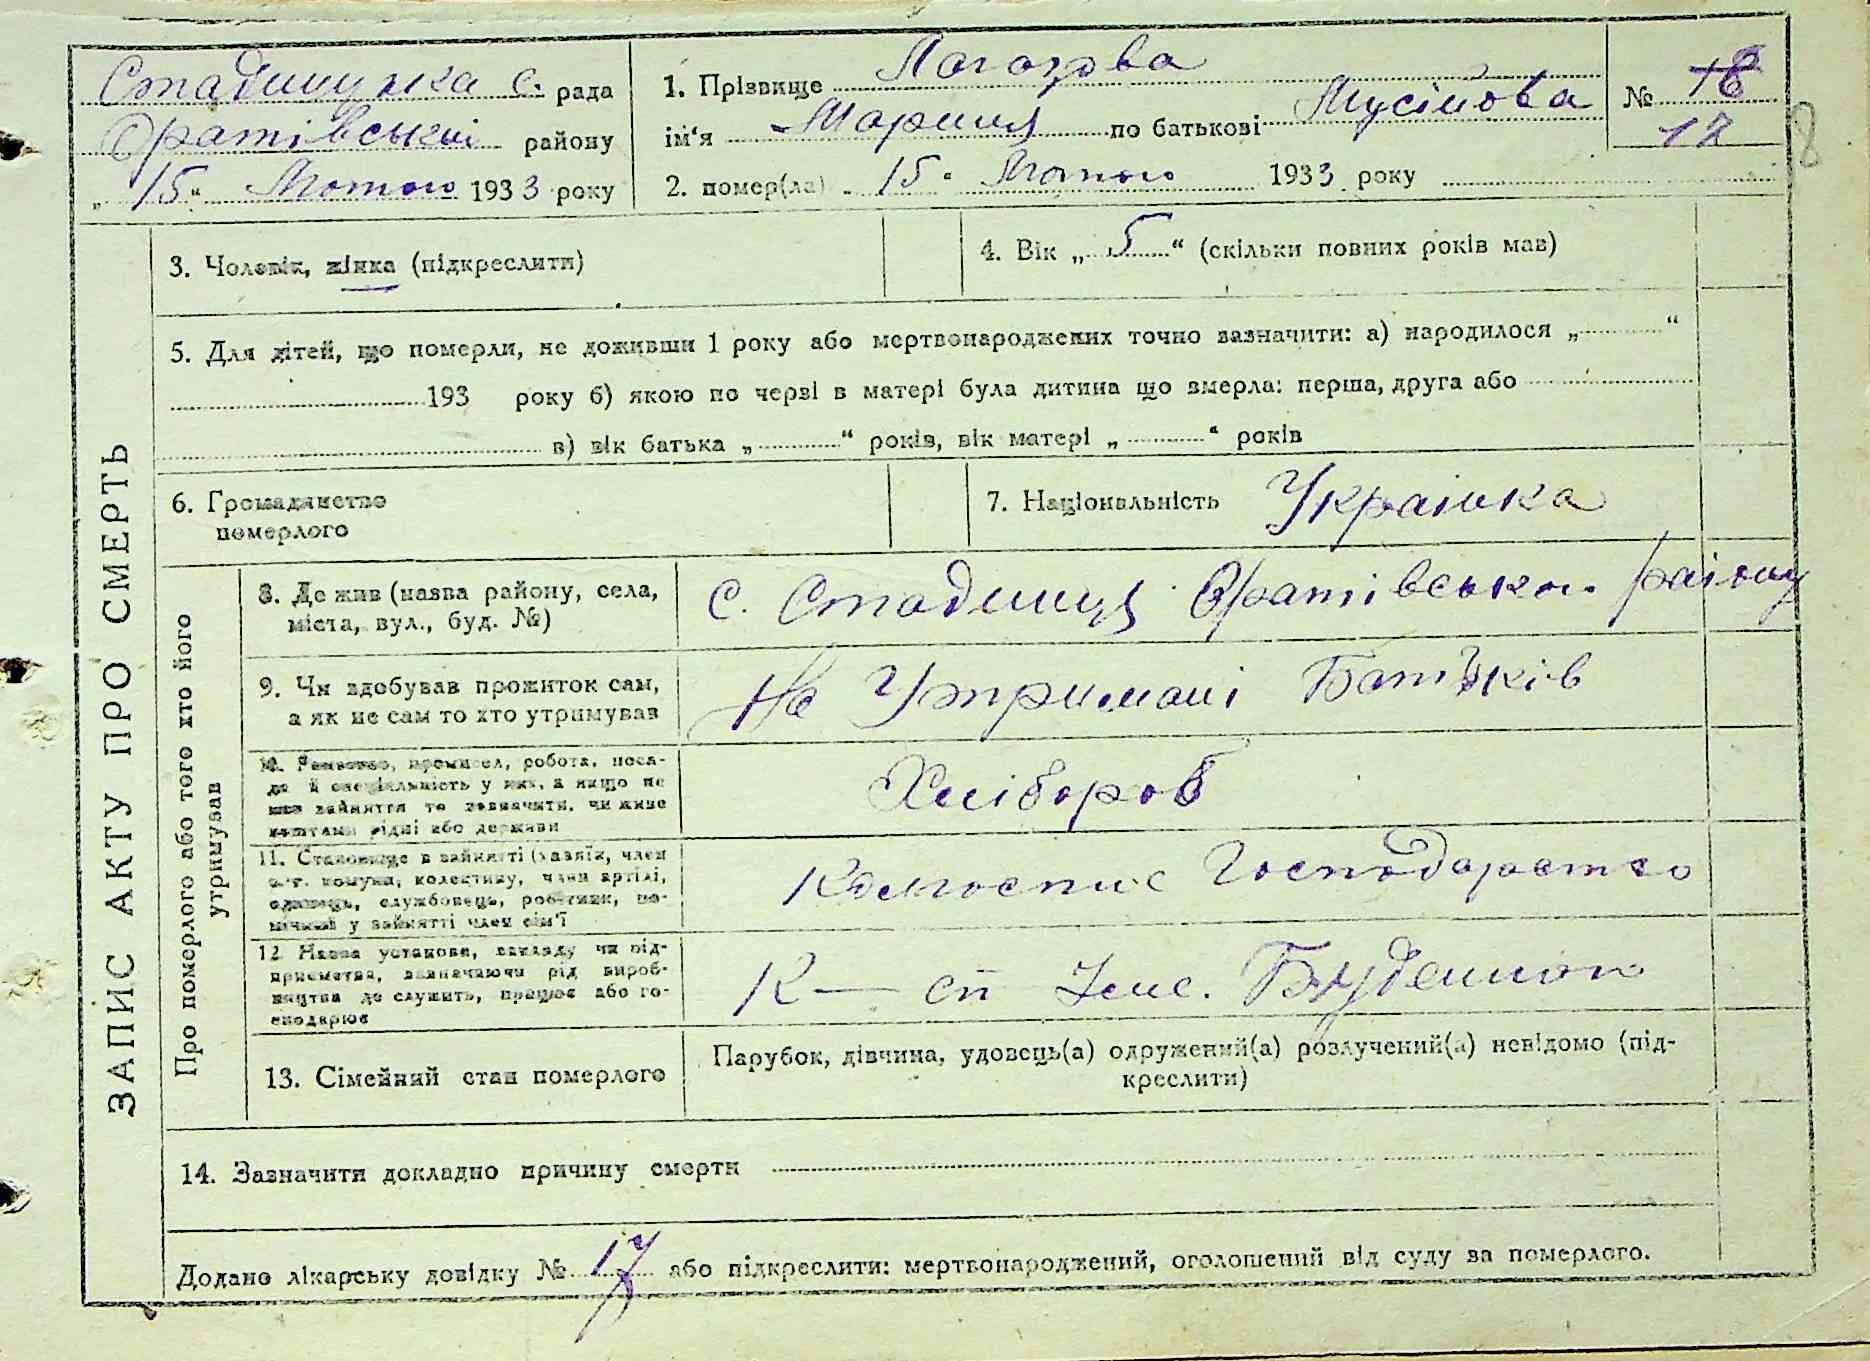 Стадницька с. рада
Оратівський району
„15“ Лютого 1933 року
1. Прізвище
ім‘я Марина по батькові Мусійова
2. помер(ла) 15 Лютого 1933 року
№ 18
17
8
ЗАПИС АКТУ ПРО СМЕРТЬ
3. Чоловік, жінка (підкреслити)
4. Вік „5“ (скільки повних років мав)
5. Для дітей, що померли, не доживши 1 року або мертвонароджених точно зазначити: а) народилося „ “
193 року б) якою по черзі в матері була дитина що вмерла: перша, друга або
в) вік батька „ “ років, вік матері „ “ років
6. Громадянство
померлого
7. Національність Украінка
Про померлого або того хто його
утримував
8. Де жив (назва району, села,
міста, вул., буд. №)
с. Стадниця Оратівсько. району
9. Чи здобував прожиток сам,
а як не сам то хто утримував
На Утримані Батьків
10. Ремество, промисел, робота, поса-
да й спеціяльність у них, а якщо не
мав зайняття то зазначити, чи живе
коштами рідні або держави
Хлібороб
11. Становище в зайнятті (хазяїн, член
с.-г. комуни, колективу, член артілі,
одинець, службовець, робітник, по-
мічний у зайнятті член сім'ї
Колгоспне Господарство
12. Назва установи, закладу чи під-
приємства, зазначаючи рід вироб-
ництва де служить, працює або го-
сподарює
К — сп Іме. Будешого
13. Сімейний стан померлого
Парубок, дівчина, удовець(а) одружений(а) розлучений(а) невідомо (під-
креслити)
14. Зазначити докладно причину смерти
Додано лікарську довідку № 17 або підкреслити: мертвонароджений, оголошений від суду за померлого.